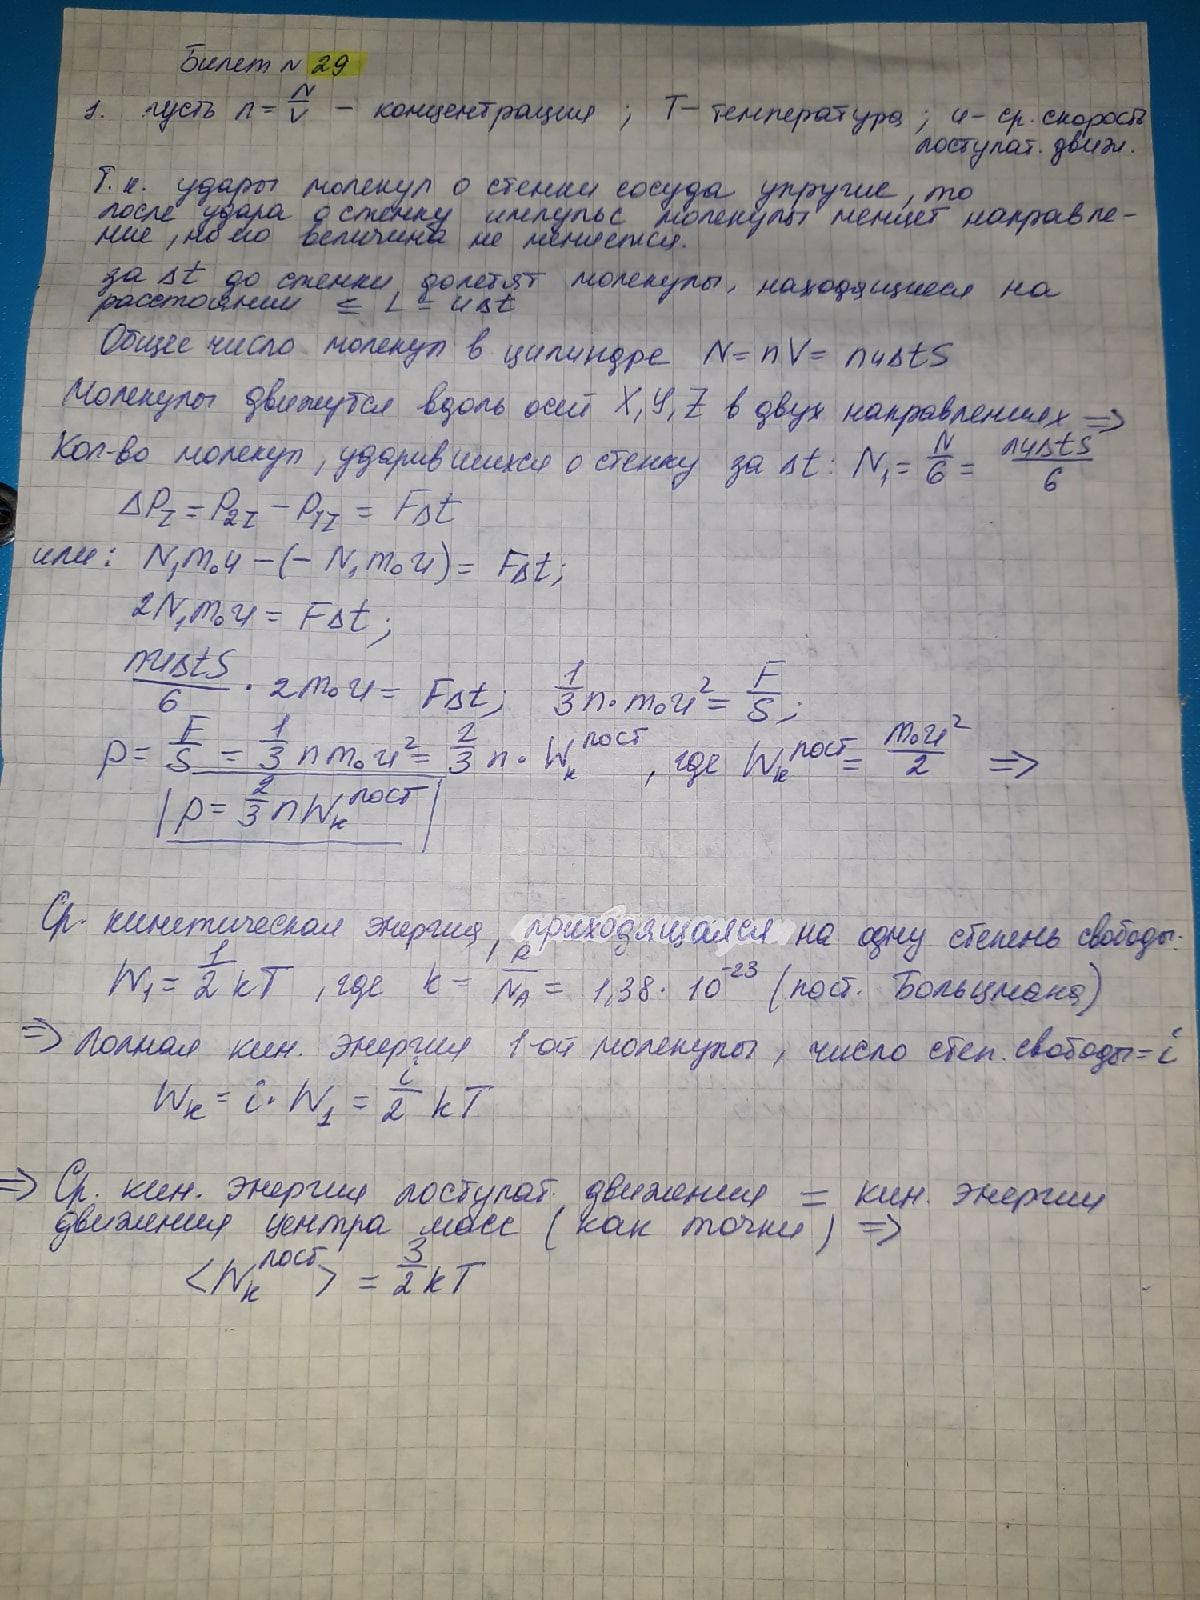 Билет N 29
1. пусть n = N/V – концентрация ; T – температура ; u – ср. скорость
поступат. движ.
Т.к. удары молекул о стенки сосуда упругие, то
после удара о стенку импульс молекулы меняет направле-
ние, но его величина не меняется.
за Δt до стенки долетят молекулы, находящиеся на
расстоянии ≤ L = uΔt
Общее число молекул в цилиндре N = nV = nuΔtS
Молекулы движутся вдоль осей X, Y, Z в двух направлениях ⇒
Кол-во молекул, ударившихся о стенку за Δt: N₁ = N/6 = nuΔtS/6
ΔP_I = P_2I – P_1I = FΔt
или: N₁m₀u – (– N₁m₀u) = FΔt;
2N₁m₀u = FΔt;
nuΔtS/6 · 2m₀u = FΔt; 1/3 n · m₀u² = F/S;
p = F/S = 1/3 n m₀u² = 2/3 n · W_k^пост, где W_k^пост = m₀u²/2 ⇒
| p = 2/3 n W_k^пост |
Ср. кинетическая энергия, приходящаяся на одну степень свободы:
W₁ = 1/2 kT, где k = R/N_A = 1,38 · 10⁻²³ (пост. Больцмана)
⇒ Полная кин. энергия 1-ой молекулы, число степ. свободы = i
W_k = i · W₁ = i/2 kT
⇒ Ср. кин. энергия поступат. движения = кин. энергии
движения центра масс (как точки) ⇒
<W_k^пост> = 3/2 kT